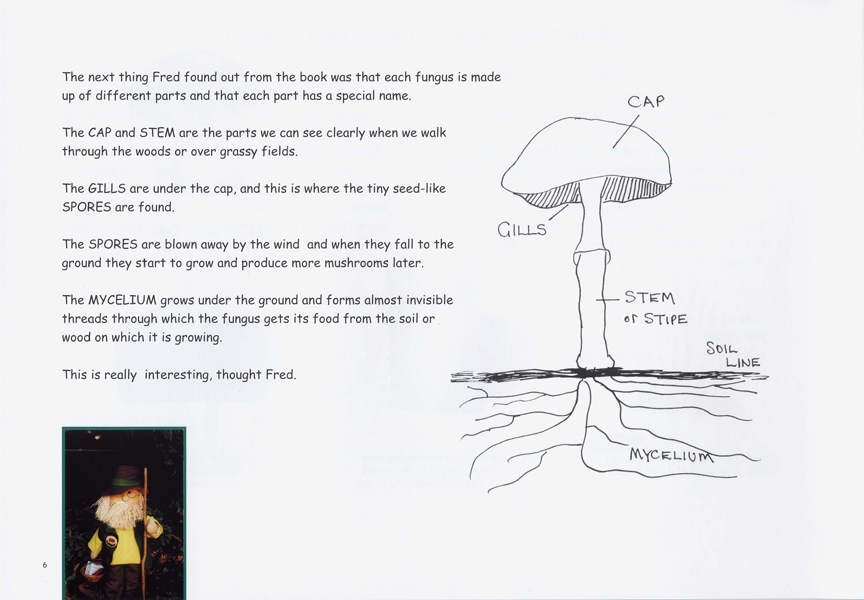 The next thing Fred found out from the book was that each fungus is made
up of different parts and that each part has a special name.
The CAP and STEM are the parts we can see clearly when we walk
through the woods or over grassy fields.
The GILLS are under the cap, and this is where the tiny seed-like
SPORES are found.
The SPORES are blown away by the wind and when they fall to the
ground they start to grow and produce more mushrooms later.
The MYCELIUM grows under the ground and forms almost invisible
threads through which the fungus gets its food from the soil or
wood on which it is growing.
This is really interesting, thought Fred.
CAP
GILLS
STEM
or STIPE
SOIL
LINE
MYCELIUM
6